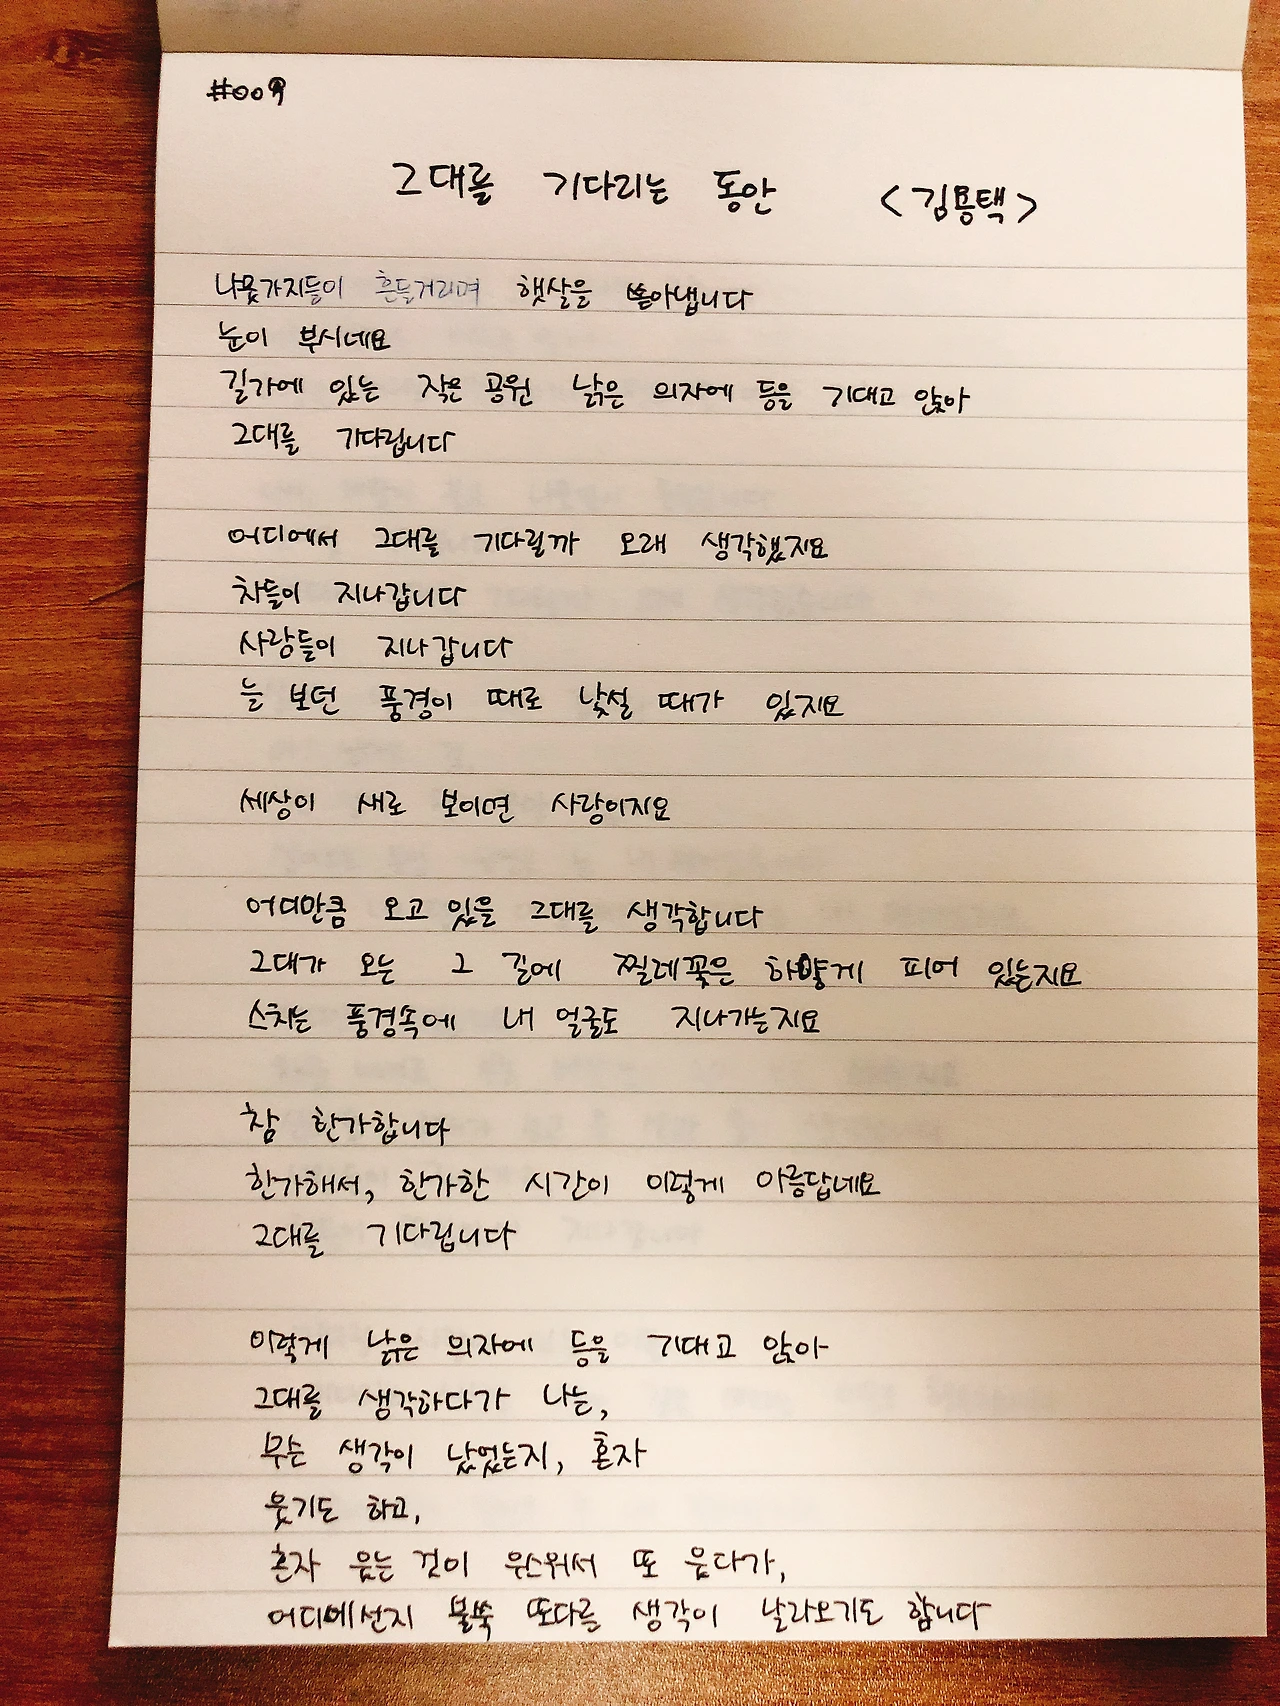 #009
그대를 기다리는 동안 <김용택>
나뭇가지들이 흔들거리며 햇살을 쏟아냅니다
눈이 부시네요
길가에 있는 작은 공원 낡은 의자에 등을 기대고 앉아
그대를 기다립니다
어디에서 그대를 기다릴까 오래 생각했지요
차들이 지나갑니다
사람들이 지나갑니다
늘 보던 풍경이 때로 낯설 때가 있지요
세상이 새로 보이면 사랑이지요
어디만큼 오고 있을 그대를 생각합니다
그대가 오는 그 길에 찔레꽃은 하얗게 피어 있는지요
스치는 풍경속에 내 얼굴도 지나가는지요
참 한가합니다
한가해서, 한가한 시간이 이렇게 아름답네요
그대를 기다립니다
이렇게 낡은 의자에 등을 기대고 앉아
그대를 생각하다가 나는,
무슨 생각이 났었는지, 혼자
웃기도 하고,
혼자 웃는 것이 우스워서 또 웃다가,
어디에선지 불쑥 또다른 생각이 날라오기도 합니다